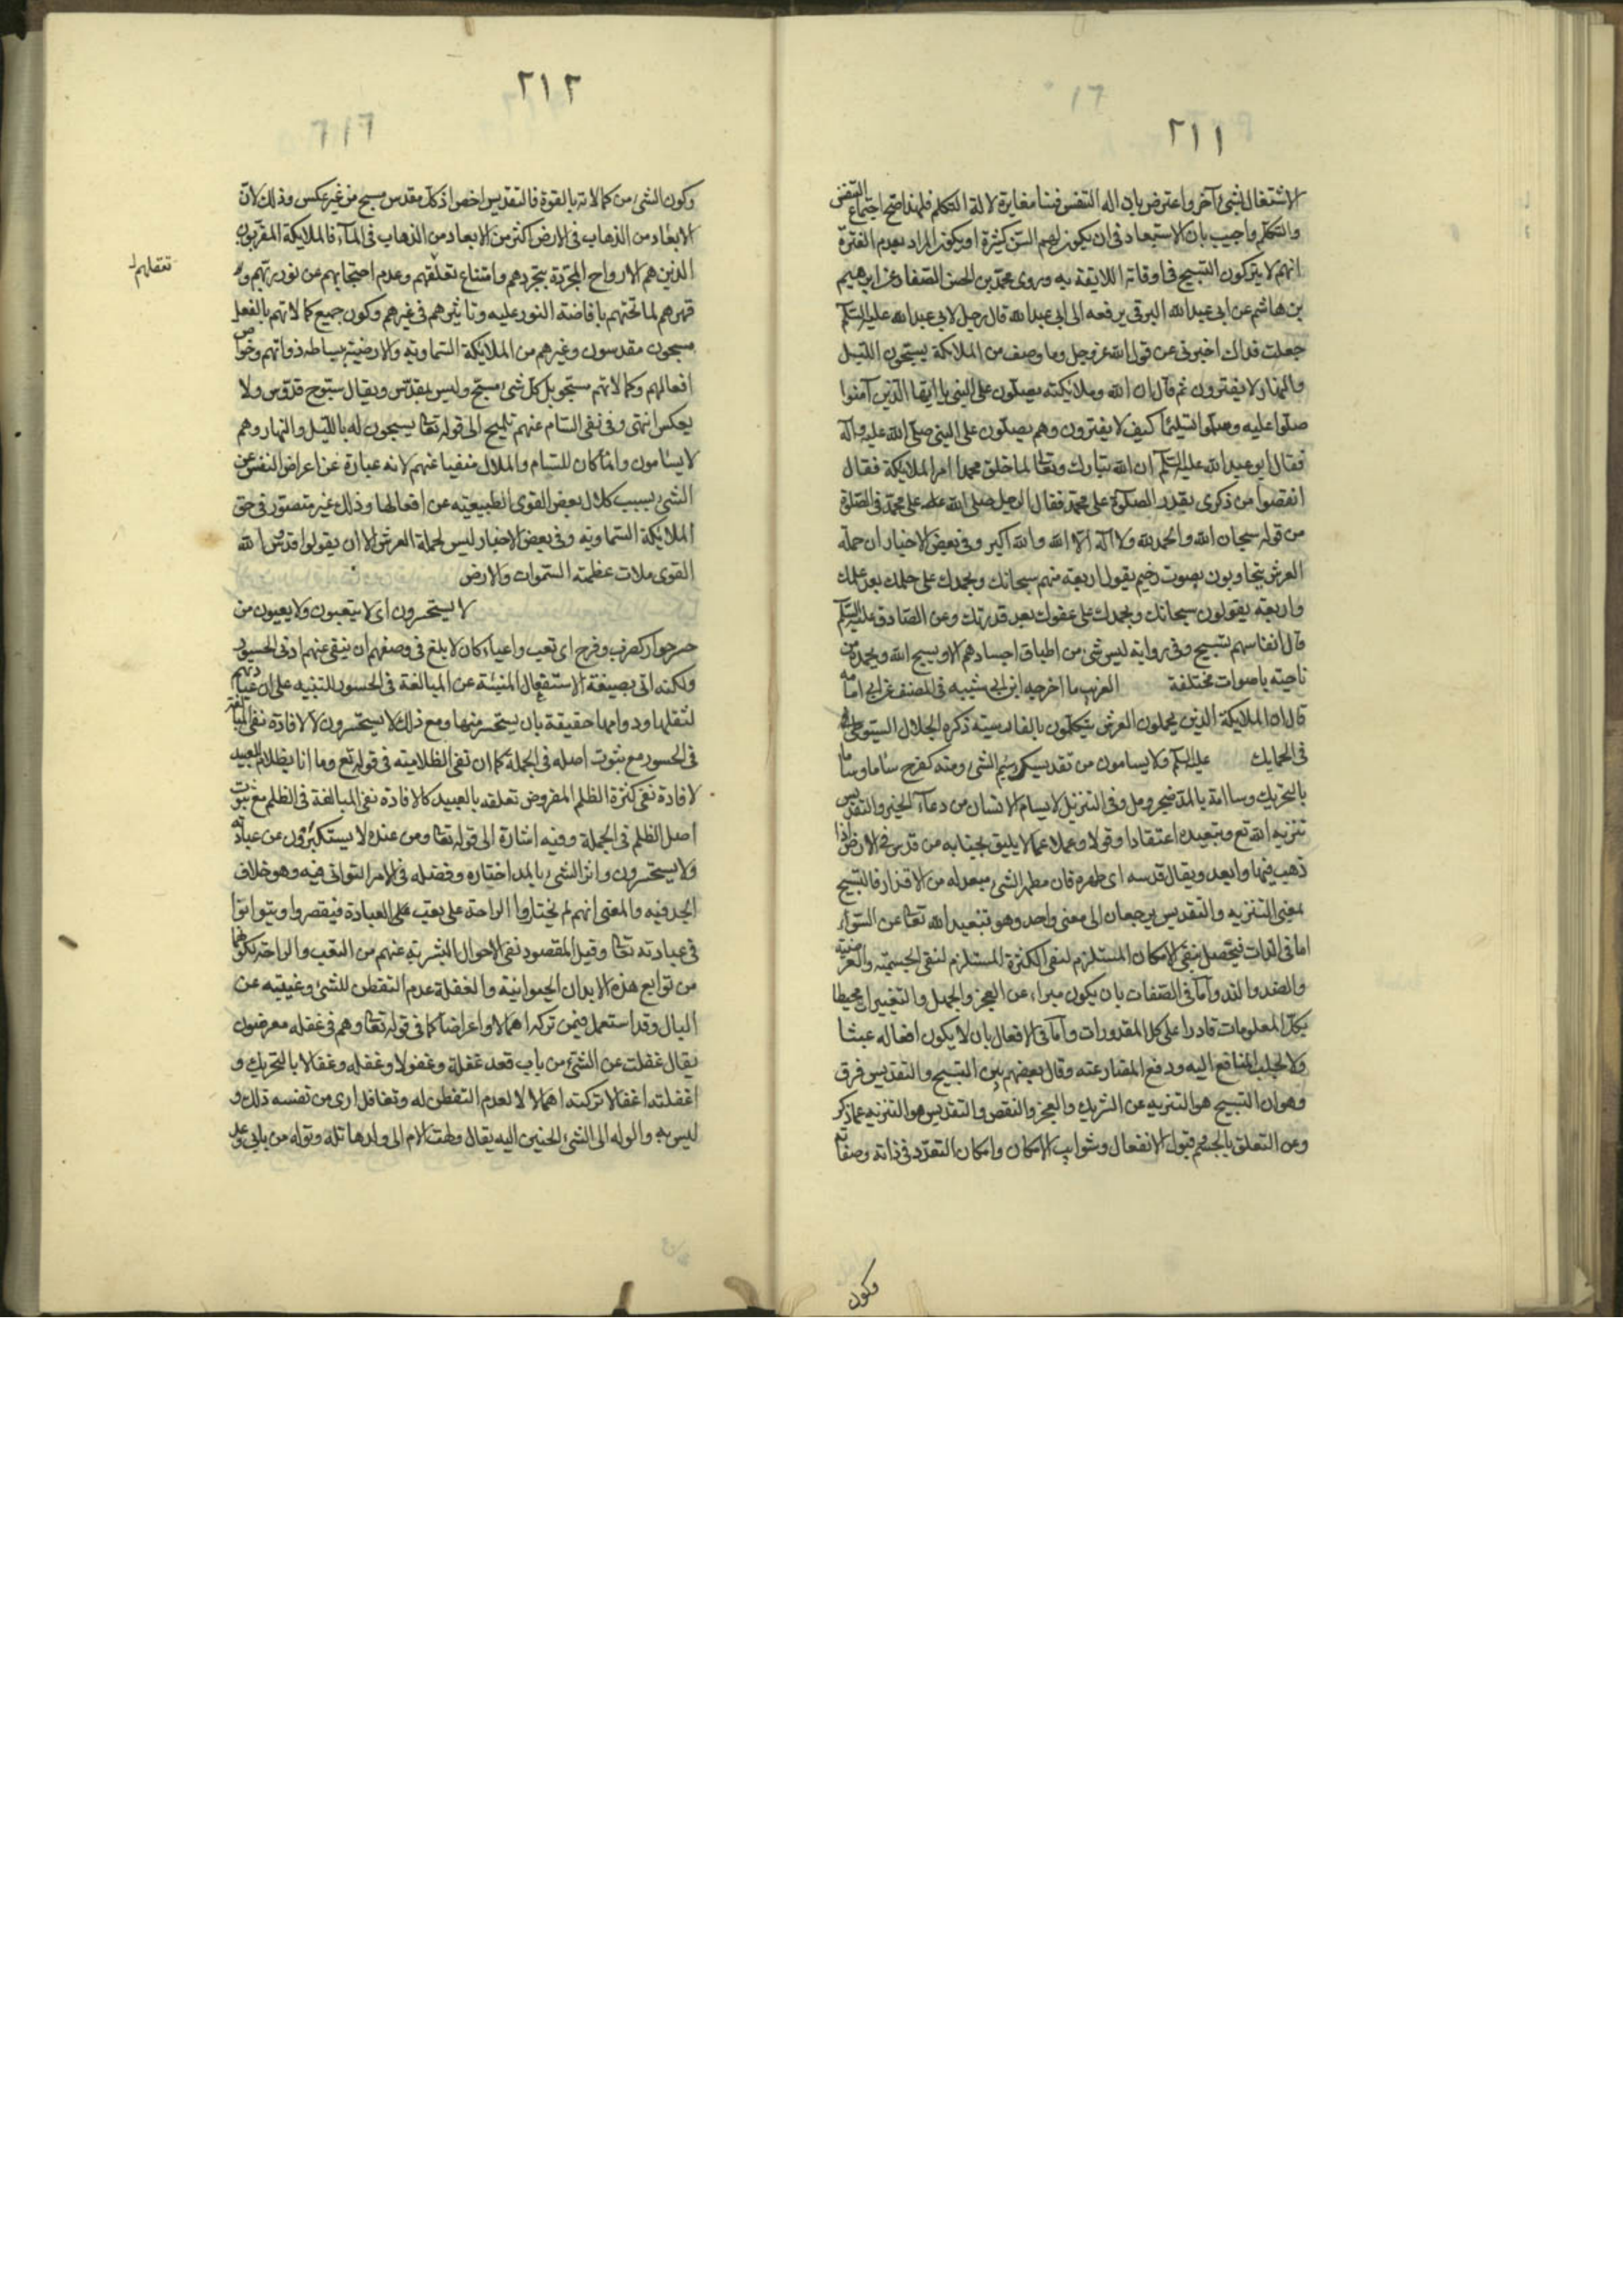 ٢١١
الاشتغال لشيء آخر واعترض بان اله التنفس فينا مغايرة لالة التكلم فلهذا صح اجتماع التنفس
والتكلم واجيب بان الاستبعاد في ان يكون لهم السن كثيرة او يكون المراد بعدم الفترة
انهم لا يتركون التسبيح في اوقاته اللايقة به وروى محمد بن الحسن الصفار عن ابرهيم
بن هاشم عن ابي عبد الله البرقي يرفعه الى ابي عبد الله قال رجل لابي عبد الله عليه السلم
جعلت فداك اخبرني عن قول الله عز وجل وما وصف من الملائكة يسبحون الليل
والنهار لا يفترون ثم قال ان الله وملائكته يصلون على النبي يا ايها الذين آمنوا
صلوا عليه وسلموا تسليما كيف لا يفترون وهم يصلون على النبي صلى الله عليه وآله
فقال ابو عبد الله عليه السلم ان الله تبارك وتعالى لما خلق محمدا امر الملائكة فقال
انقصوا من ذكرى بقدر الصلوة على محمد فقال الرجل صلى الله على محمد في الصلوة
من قوله سبحان الله والحمد لله ولا اله الا الله والله اكبر وفي بعض الاخبار ان حملة
العرش يتجاوبون بصوت رخيم يقول اربعة منهم سبحانك وبحمدك على حلمك بعد علمك
واربعة يقولون سبحانك وبحمدك على عفوك بعد قدرتك وعن الصادق عليه السلم
قال انفاسهم تسبيح وفي رواية ليس شيء من اطباق اجسادهم الا ويسبح الله وبحمده من
ناحيته باصوات مختلفة الغريب ما اخرجه ابن ابي شيبه في المصنف عن ابي امامه
قال ان الملايكة الذين يحملون العرش يتكلمون بالفارسية ذكره الجلال السيوطي
في الحبايك عليه السلم ولا يسامون من تقديسك سئم الشيء ومنه كفرح ساما وساما
بالتحريك وساامة بالمد ضجر ومل وفي التنزيل لا يسام الانسان من دعاء الخير والتقديس
تنزيه الله تع وتبعيده اعتقادا وقولا وعملا عما لا يليق بجنابه من قدس في الارض اذا
ذهب فيها وابعد ويقال قدسه اي طهره فان مطهر الشيء مبعد له من الاقذار فالتسبيح
بمعنى التنزيه والتقديس يرجعان الى معنى واحد وهو تبعيد الله تعالى عن السوء
اما في الذات فيحصل بنفي الامكان المستلزم لنفي الكثرة المستلزم لنفي الجسمية والعرضية
والضد والند واما في الصفات بان يكون مبراء عن العجز والجهل والتغيير محيطا
بكل المعلومات قادرا على كل المقدورات واما في الافعال بان لا يكون افعاله عبثا
ولا لجلب المنافع اليه ودفع المضار عنه وقال بعضهم بين التسبيح والتقديس فرق
وهو ان التسبيح هو التنزيه عن الشريك والعجز والنقص والتقديس هو التنزيه عما ذكر
وعن التعلق بالجسم قبول الانفعال وشوايب الامكان وامكان التعدد في ذاته وصفاته
وكون
٢١٢
وكون الشيء من كمالاته بالقوة فالتقديس اخص اذ كل مقدس مسبح من غير عكس وذلك لان
الابعاد من الذهاب في الارض اكثر من الابعاد من الذهاب في الماء فالملايكة المقربون
الذين هم الارواح المجردة بتجردهم وامتناع تعلقهم وعدم احتجابهم عن نور ربهم و
قهرهم لما تحتهم بافاضة النور عليه وتاثيرهم في غيرهم وكون جميع كمالاتهم بالفعل
مسبحون مقدسون وغيرهم من الملايكة السماوية والارضية بساطه ذواتهم وخواص
افعالهم وكمالاتهم مسبحو بل كل شيء مسبح وليس بمقدس ويقال سبوح قدوس ولا
يعكس انتهى وفي نفي السام عنهم تلميح الى قوله تعالى يسبحون له بالليل والنهار وهم
لا يسامون وانما كان للسام والملال منفيا عنهم لانه عبارة عن اعراض النفس عن
الشيء بسبب كلال بعض القوى الطبيعية عن افعالها وذلك غير متصور في حق
الملائكة السماوية وفي بعض الاخبار ليس لحملة العرش الا ان يقولوا قدوس الله
القوى ملات عظمته السموات والارض
لا يستحسرون اي لا يتعبون ولا يعيون من
حسر حوارا كضرب وفرح اي تعب واعياء كان لا بلغ في وصفهم ان ينفى عنهم ادنى الحسور
ولكنه اتى بصيغة الاستفعال المنبئة عن المبالغة في الحسور للتنبيه على ان عبادتهم
لثقلها ودوامها حقيقة بان يستحسر منها ومع ذلك لا يستحسرون لا لافادة نفي المبالغة
في الحسور مع ثبوت اصله في الجملة كما ان نفي الظلامية في قوله تع وما انا بظلام للعبيد
لافادة نفي كثرة الظلم المفروض تعلقه بالعبيد كالافادة نفي المبالغة في الظلم مع ثبوت
اصل الظلم في الجملة وفيه اشارة الى قوله تعالى ومن عنده لا يستكبرون عن عبادته
ولا يستحسرون واثر الشيء بالمد اختاره وفضله في الامر التواني فيه وهو خلاف
الجد فيه والمعنى انهم لم يختاروا الراحة على تعب على العبادة فيقصروا ويتوانوا
في عبادته تعالى وقيل المقصود نفي الاحوال البشرية عنهم من التعب والراحة لكونهما
من توابع هذه الابدان الحيوانية والغفلة عدم التفطن للشيء وغيبته عن
البال وقد استعمل فيمن تركه اهمالا واعراضا كما في قوله تعالى وهم في غفله معرضون
يقال غفلت عن الشيء من باب قعد غفلة وغفولا وغفله وغفلا بالتحريك و
اغفلته اغفالا تركته اهمالا لا لعدم التفطن له وتغافل ارى من نفسه ذلك و
ليس به والوله الى الشيء الحنين اليه يقال ولهت الام الى ولدها تله وتوله من بابي وعد
تعقلهم